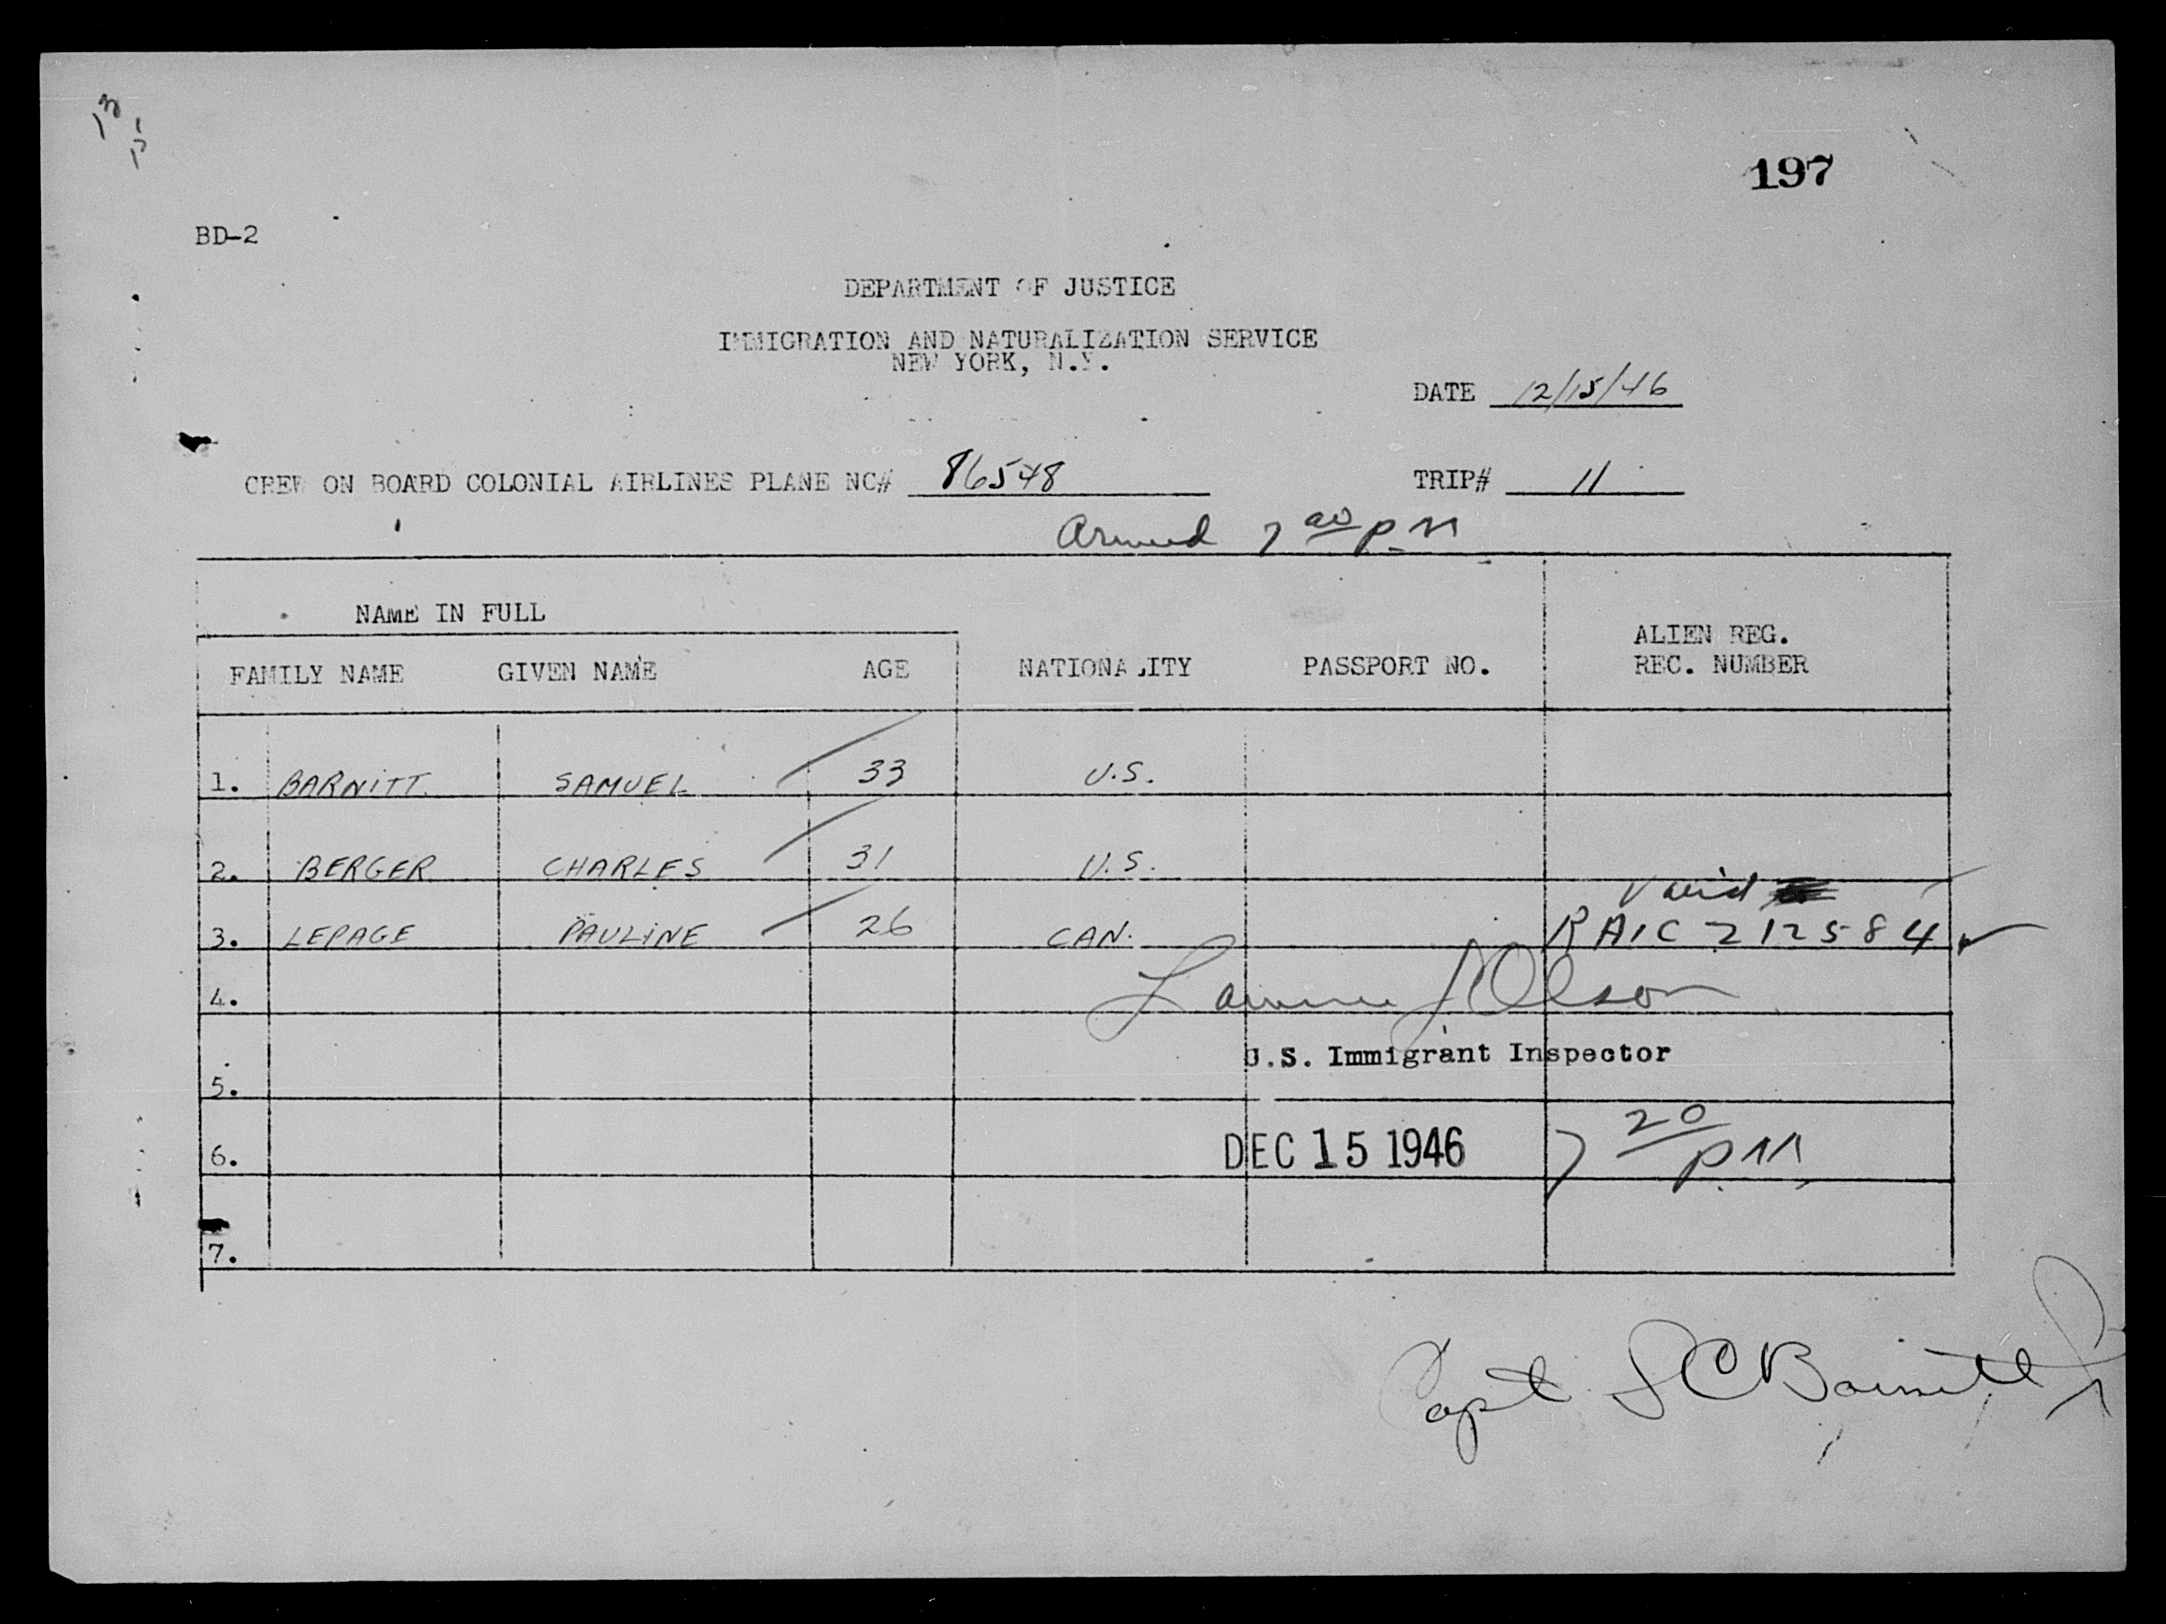 197
BD-2
DEPARTMENT OF JUSTICE
IMMIGRATION AND NATURALIZATION SERVICE
NEW YORK, N.Y.
DATE 12/15/46
CREW ON BOARD COLONIAL AIRLINES PLANE NC# 86548 TRIP# 11
Arrived 7 00 PM
NAME IN FULL
FAMILY NAME GIVEN NAME AGE NATIONALITY PASSPORT NO. ALIEN REG. REC. NUMBER
1. BARNITT SAMUEL 33 U.S.
2. BERGER CHARLES 31 U.S.
Valid
3. LEPAGE PAULINE 26 CAN. RAIC 212584
4. Lawrence J Olson
U.S. Immigrant Inspector
5.
6. DEC 15 1946 7 20 PM
7.
Capt. S C Barnitt Jr